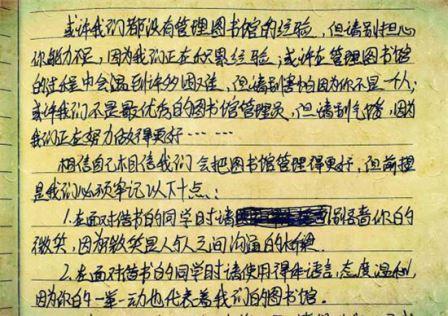 或许我们都没有管理图书馆的经验，但请别担心
你能力不足，因为我们正在积累经验；或许在管理图书馆
的过程中会遇到许多困难，但请别害怕因为你不是一人；
或许我们不是最优秀的图书馆管理员，但请别气馁，因为
我们正在努力做得更好……
相信自己相信我们会把图书馆管理得更好，但前提
是我们必须牢记以下十点：
1.在面对借书的同学时请 你的
微笑，因为微笑是人与人之间沟通的桥梁。
2.在面对借书的同学时请使用得体语言，态度温和，
因为你的一举一动也代表着我们的图书馆。